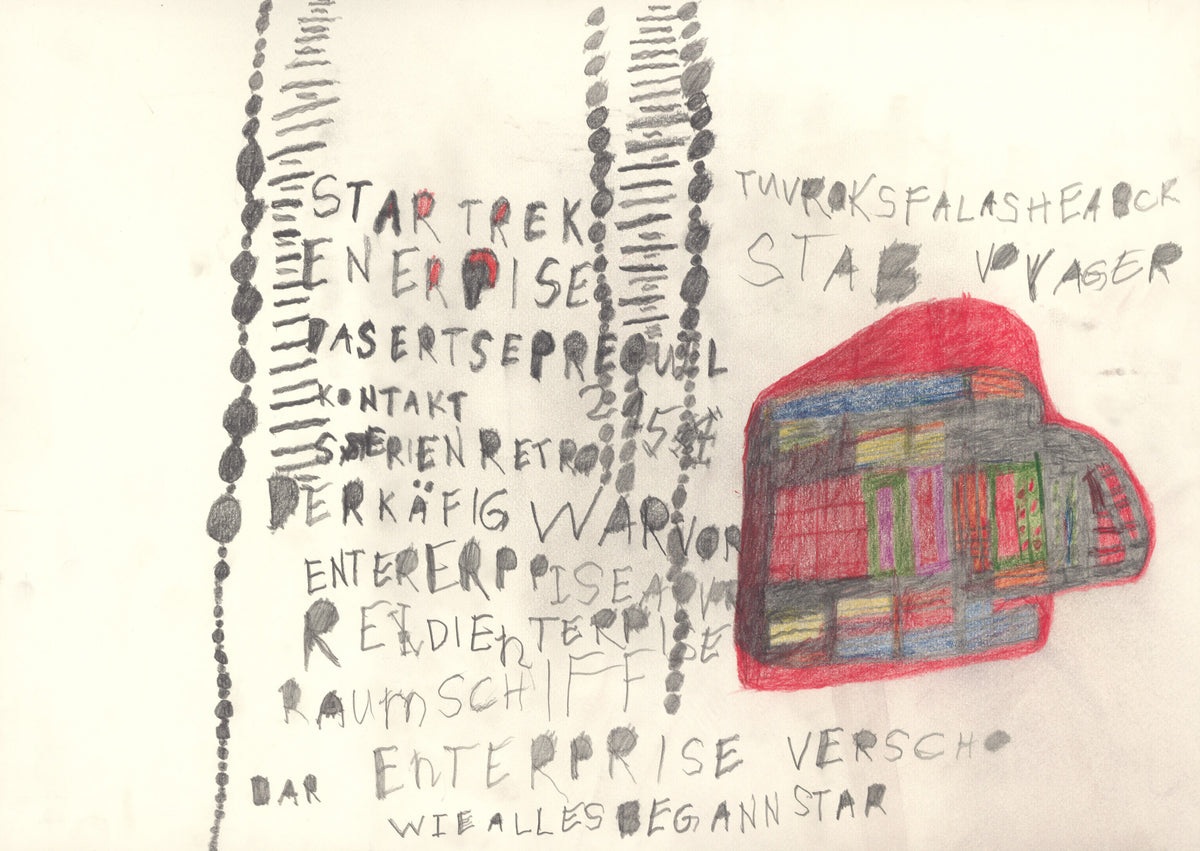 STAR TREK
ENERPRISE
DASERTSEPREQUIL
KONTAKT
SSERIEN RETRO
DER KÄFIG WAR VOR
ENTERERPPRISE
REI DIENTERPRISE
RAUMSCHIFF
ENTERPRISE VERSCHO
DAR
WIEALLESBEGANNSTAR
TUVROKSFALASHEABCK
STAB VOYAGER